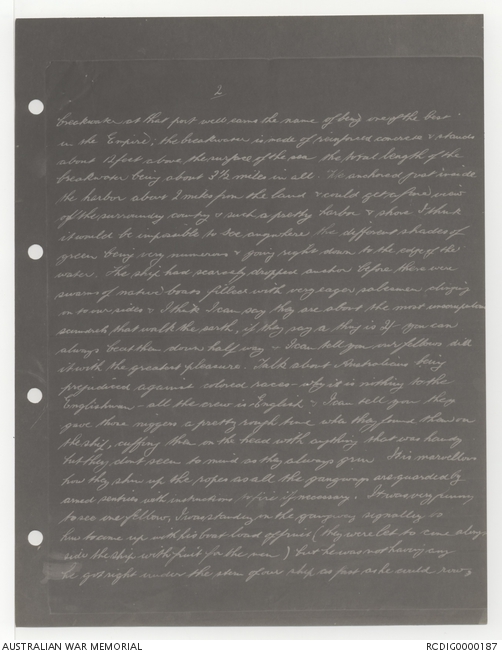 2
breakwater at that port well earns the name of being one of the best
in the Empire, the breakwater is made of reinforced concrete & stands
about 12 feet above the surface of the sea the total length of the
breakwater being about 3½ miles in all. We anchored just inside
the harbor about 2 miles from the land & could get a fine view
of the surrounding country & such a pretty harbor & shore I think
it would be impossible to see anywhere the different shades of
green being very numerous & going right down to the edge of the
water. The ship had scarcely dropped anchor before there were
swarms of native boats filled with very eager salesmen clinging
in to our sides & I think I can say they are about the most unscrupulous
scoundrels that walk the earth, if they say a thing is 2/- you can
always beat them down half way & I can tell you our fellows did
it with the greatest pleasure. Talk about Australians being
prejudiced against colored races why it is nothing to the
Englishman - all the crew is English & I can tell you they
gave those niggers a pretty rough time when they found them on
the ship, cuffing them on the head with anything that was handy
but they don't seem to mind as they always grin. It is marvellous
how they shin up the ropes as all the gangways are guarded by
armed sentries with instructions to fire if necessary. It was very funny
to see one fellow, I was standing on the gangway signalling
him to come up with his boat load of fruit (they were let to come along
side the ship with fruit for the men) but he was not having any
he got right under the stern of our ship as fast as he could row,
AUSTRALIAN WAR MEMORIAL
RCDIG0000187